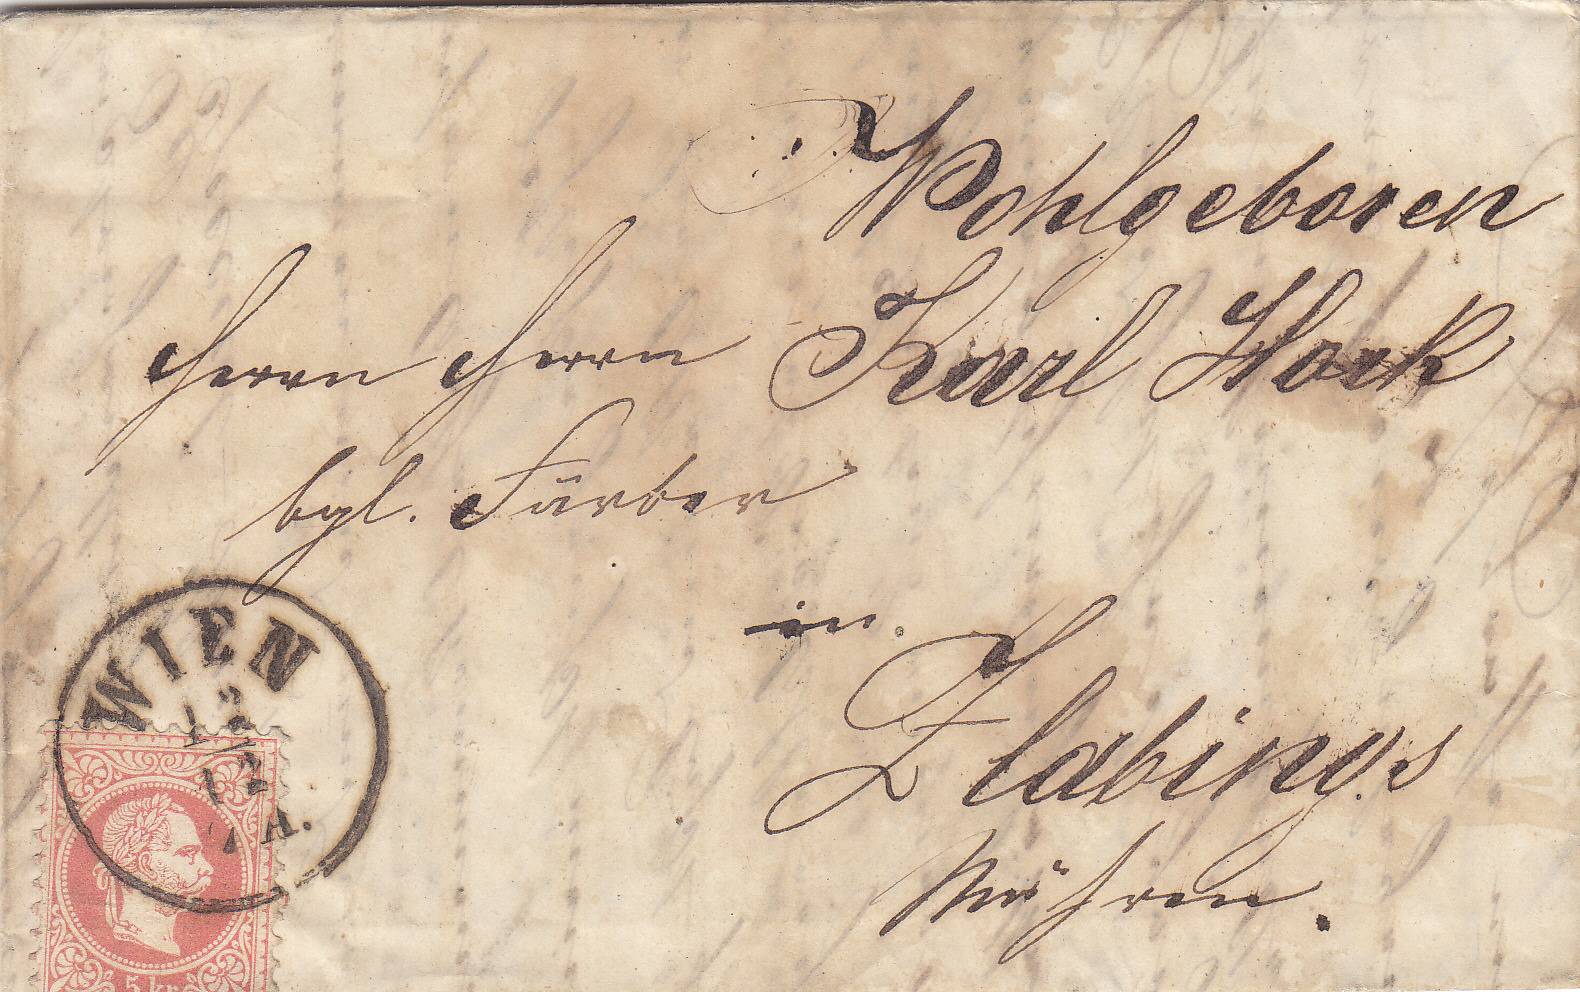 Wohlgeboren
Herrn Herrn Karl Hock
bgl. Färber
in
Zlabings
Mähren.
WIEN
12
12
7 A.
5 kr